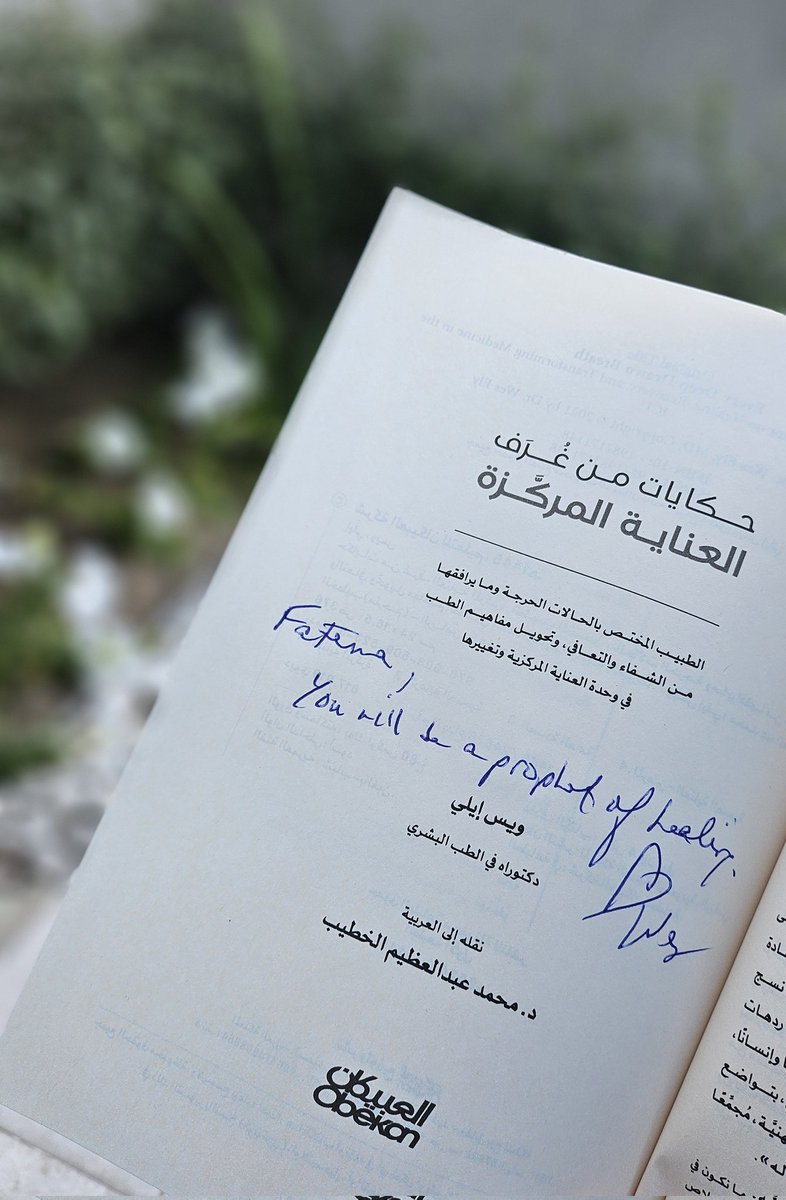 حكايات من غُرَف
العناية المركَّزة
الطبيب المختص بالحالات الحرجة وما يرافقها
من الشفاء والتعافي، وتحويل مفاهيم الطب
في وحدة العناية المركزية وتغييرها
Fatema,
You will be a prophet of healing.
ويس إيلي
دكتوراه في الطب البشري
Wes
نقله إلى العربية
د. محمد عبدالعظيم الخطيب
العبيكان
Obeikan
نسج
ردهات
وإنسانًا،
بتواضع
مُجمَّعًا
ما نكون في